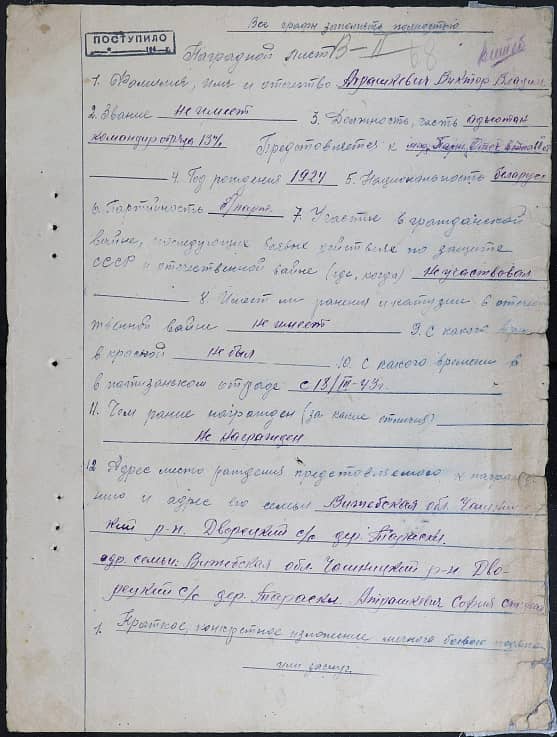 Все графы заполнять полностью
ПОСТУПИЛО
Наградной лист В-II 68
1. Фамилия, имя и отчество Атрашкевич Виктор
2. Звание не имеет 3. Должность, часть адъютан
командир отряда 1376 Представляется к мед. Парт. Отеч. войны II
4. Год рождения 1924 5. Национальность беларус
6. Партийность 7. Участие в гражданской
войне, последующих боевых действиях по защите
СССР и отечественной войне (где, когда) не участвовал
8. Имеет ли ранения и контузии в отече
ственной войне не имеет 9. С какого
в красной не был 10. С какого времени в
в партизанском отряде с 18/III-43 г.
11. Чем ранее награжден (за какие отличия)
не награжден
12 Адрес место рождения представляемого к
нию и адрес его семьи Витебская обл.
кий р-н. Дворецкий с/с дер. Тараски.
адр. семьи: Витебская обл. Чашницкий р-н Дво-
рецкий с/с дер. Тараски. Атрашкевич София
1. Краткое, конкретное изложение личного боевого
или заслуг.